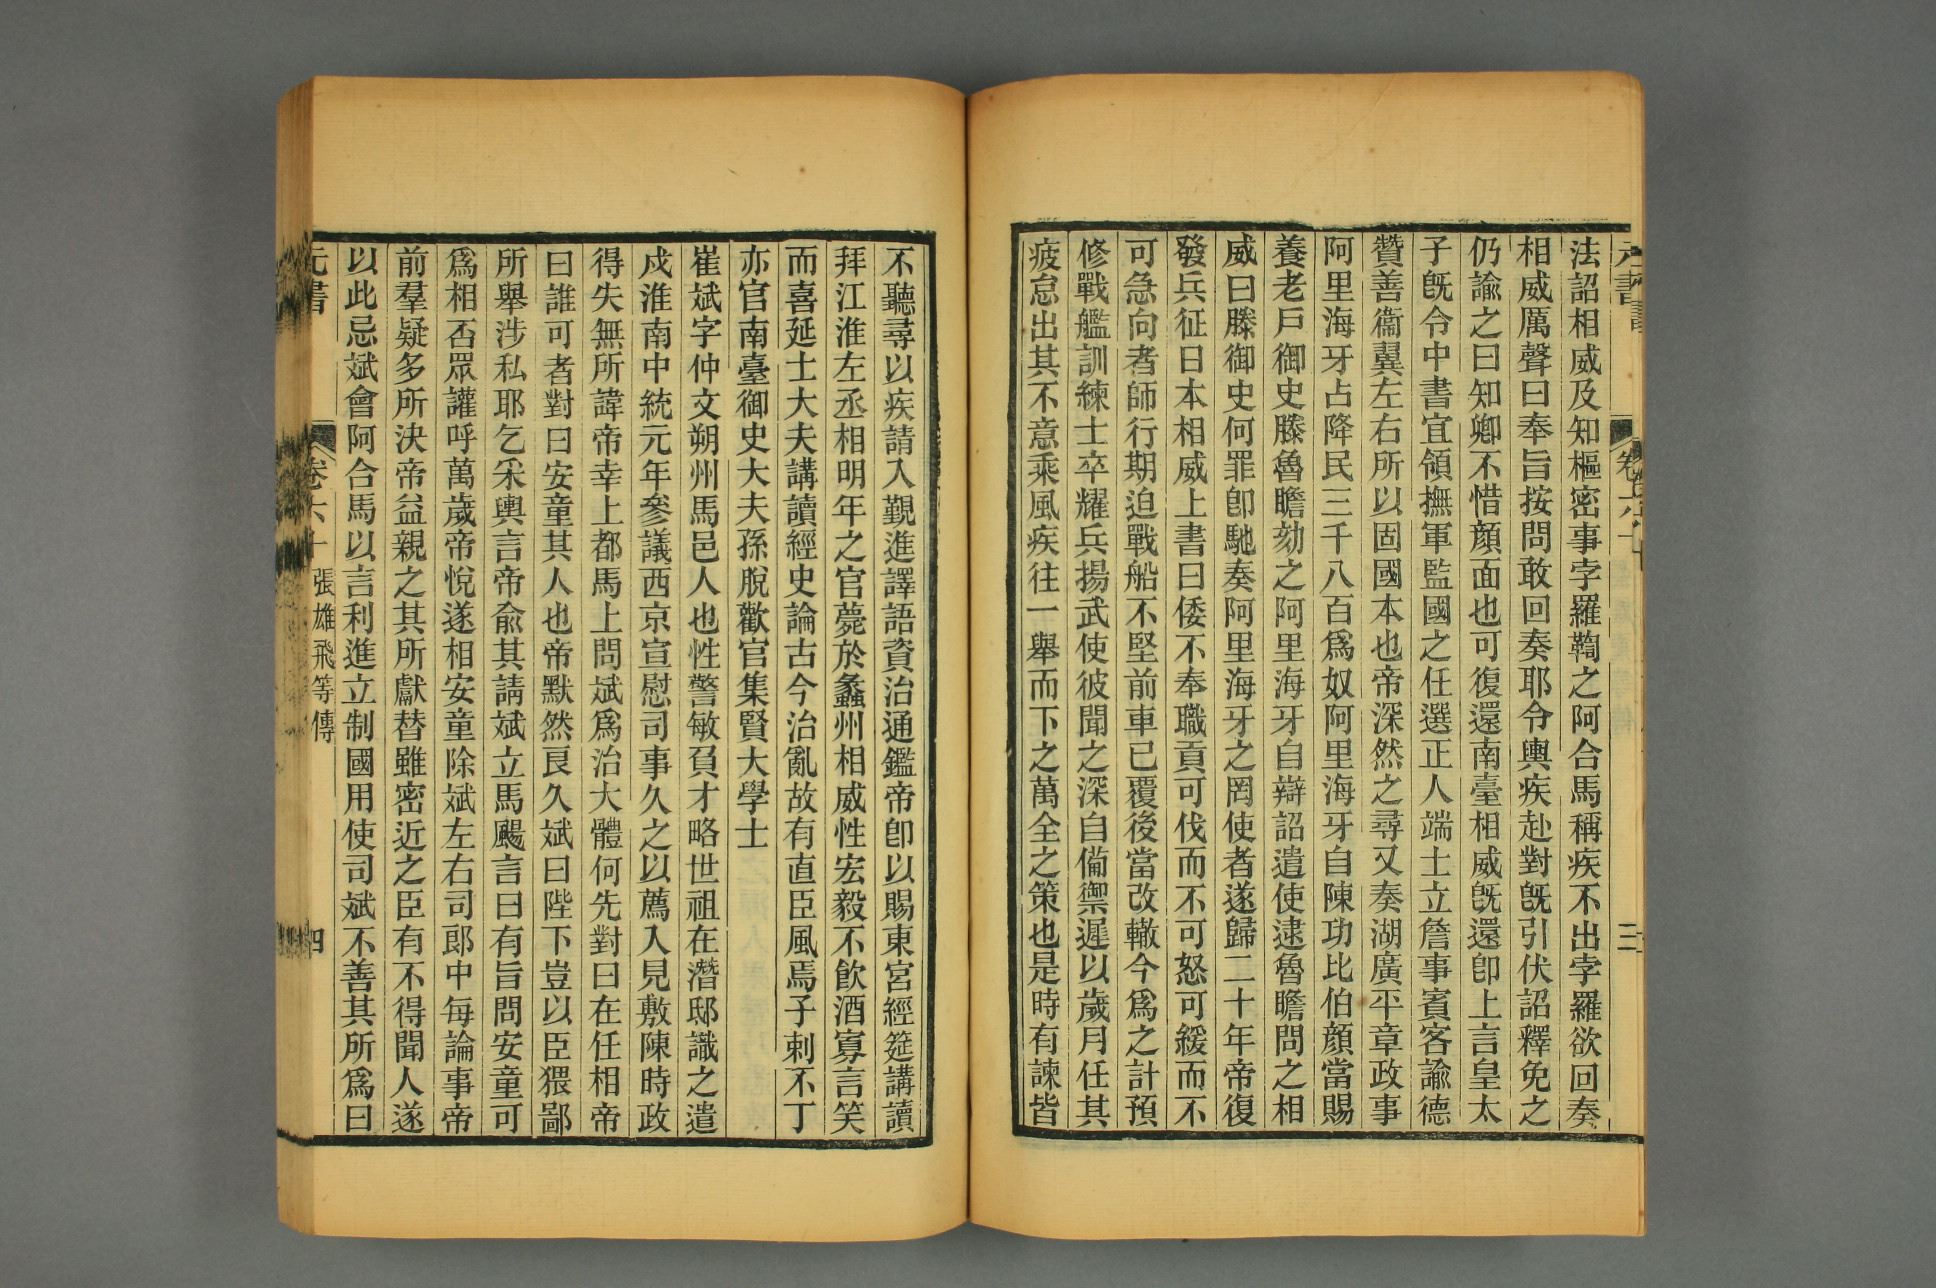 元書
卷六十
三
法詔相威及知樞密事孛羅鞫之阿合馬稱疾不出孛羅欲回奏
相威厲聲曰奉旨按問敢回奏耶令輿疾赴對旣引伏詔釋免之
仍諭之曰知卿不惜顏面也可復還南臺相威旣還卽上言皇太
子旣令中書宜領撫軍監國之任選正人端士立詹事賓客諭德
贊善衞翼左右所以固國本也帝深然之尋又奏湖廣平章政事
阿里海牙占降民三千八百爲奴阿里海牙自陳功比伯顏當賜
養老戶御史滕魯瞻劾之阿里海牙自辯詔遣使逮魯瞻問之相
威曰滕御史何罪卽馳奏阿里海牙之罔使者遂歸二十年帝復
發兵征日本相威上書曰倭不奉職貢可伐而不可怒可緩而不
可急向者師行期迫戰船不堅前車已覆後當改轍今爲之計預
修戰艦訓練士卒耀兵揚武使彼聞之深自備禦遲以歲月任其
疲怠出其不意乘風疾往一舉而下之萬全之策也是時有諫皆
不聽尋以疾請入覲進譯語資治通鑑帝卽以賜東宮經筵講讀
拜江淮左丞相明年之官薨於蠡州相威性宏毅不飮酒寡言笑
而喜延士大夫講讀經史論古今治亂故有直臣風焉子剌不丁
亦官南臺御史大夫孫脫歡官集賢大學士
崔斌字仲文朔州馬邑人也性警敏負才略世祖在潛邸識之遣
戍淮南中統元年參議西京宣慰司事久之以薦入見敷陳時政
得失無所諱帝幸上都馬上問斌爲治大體何先對曰在任相帝
曰誰可者對曰安童其人也帝默然良久斌曰陛下豈以臣猥鄙
所舉涉私耶乞采輿言帝俞其請斌立馬颺言曰有旨問安童可
爲相否眾讙呼萬歲帝悅遂相安童除斌左右司郎中每論事帝
前羣疑多所決帝益親之其所獻替雖密近之臣有不得聞人遂
以此忌斌會阿合馬以言利進立制國用使司斌不善其所爲曰
元書
卷六十
張雄飛等傳
四